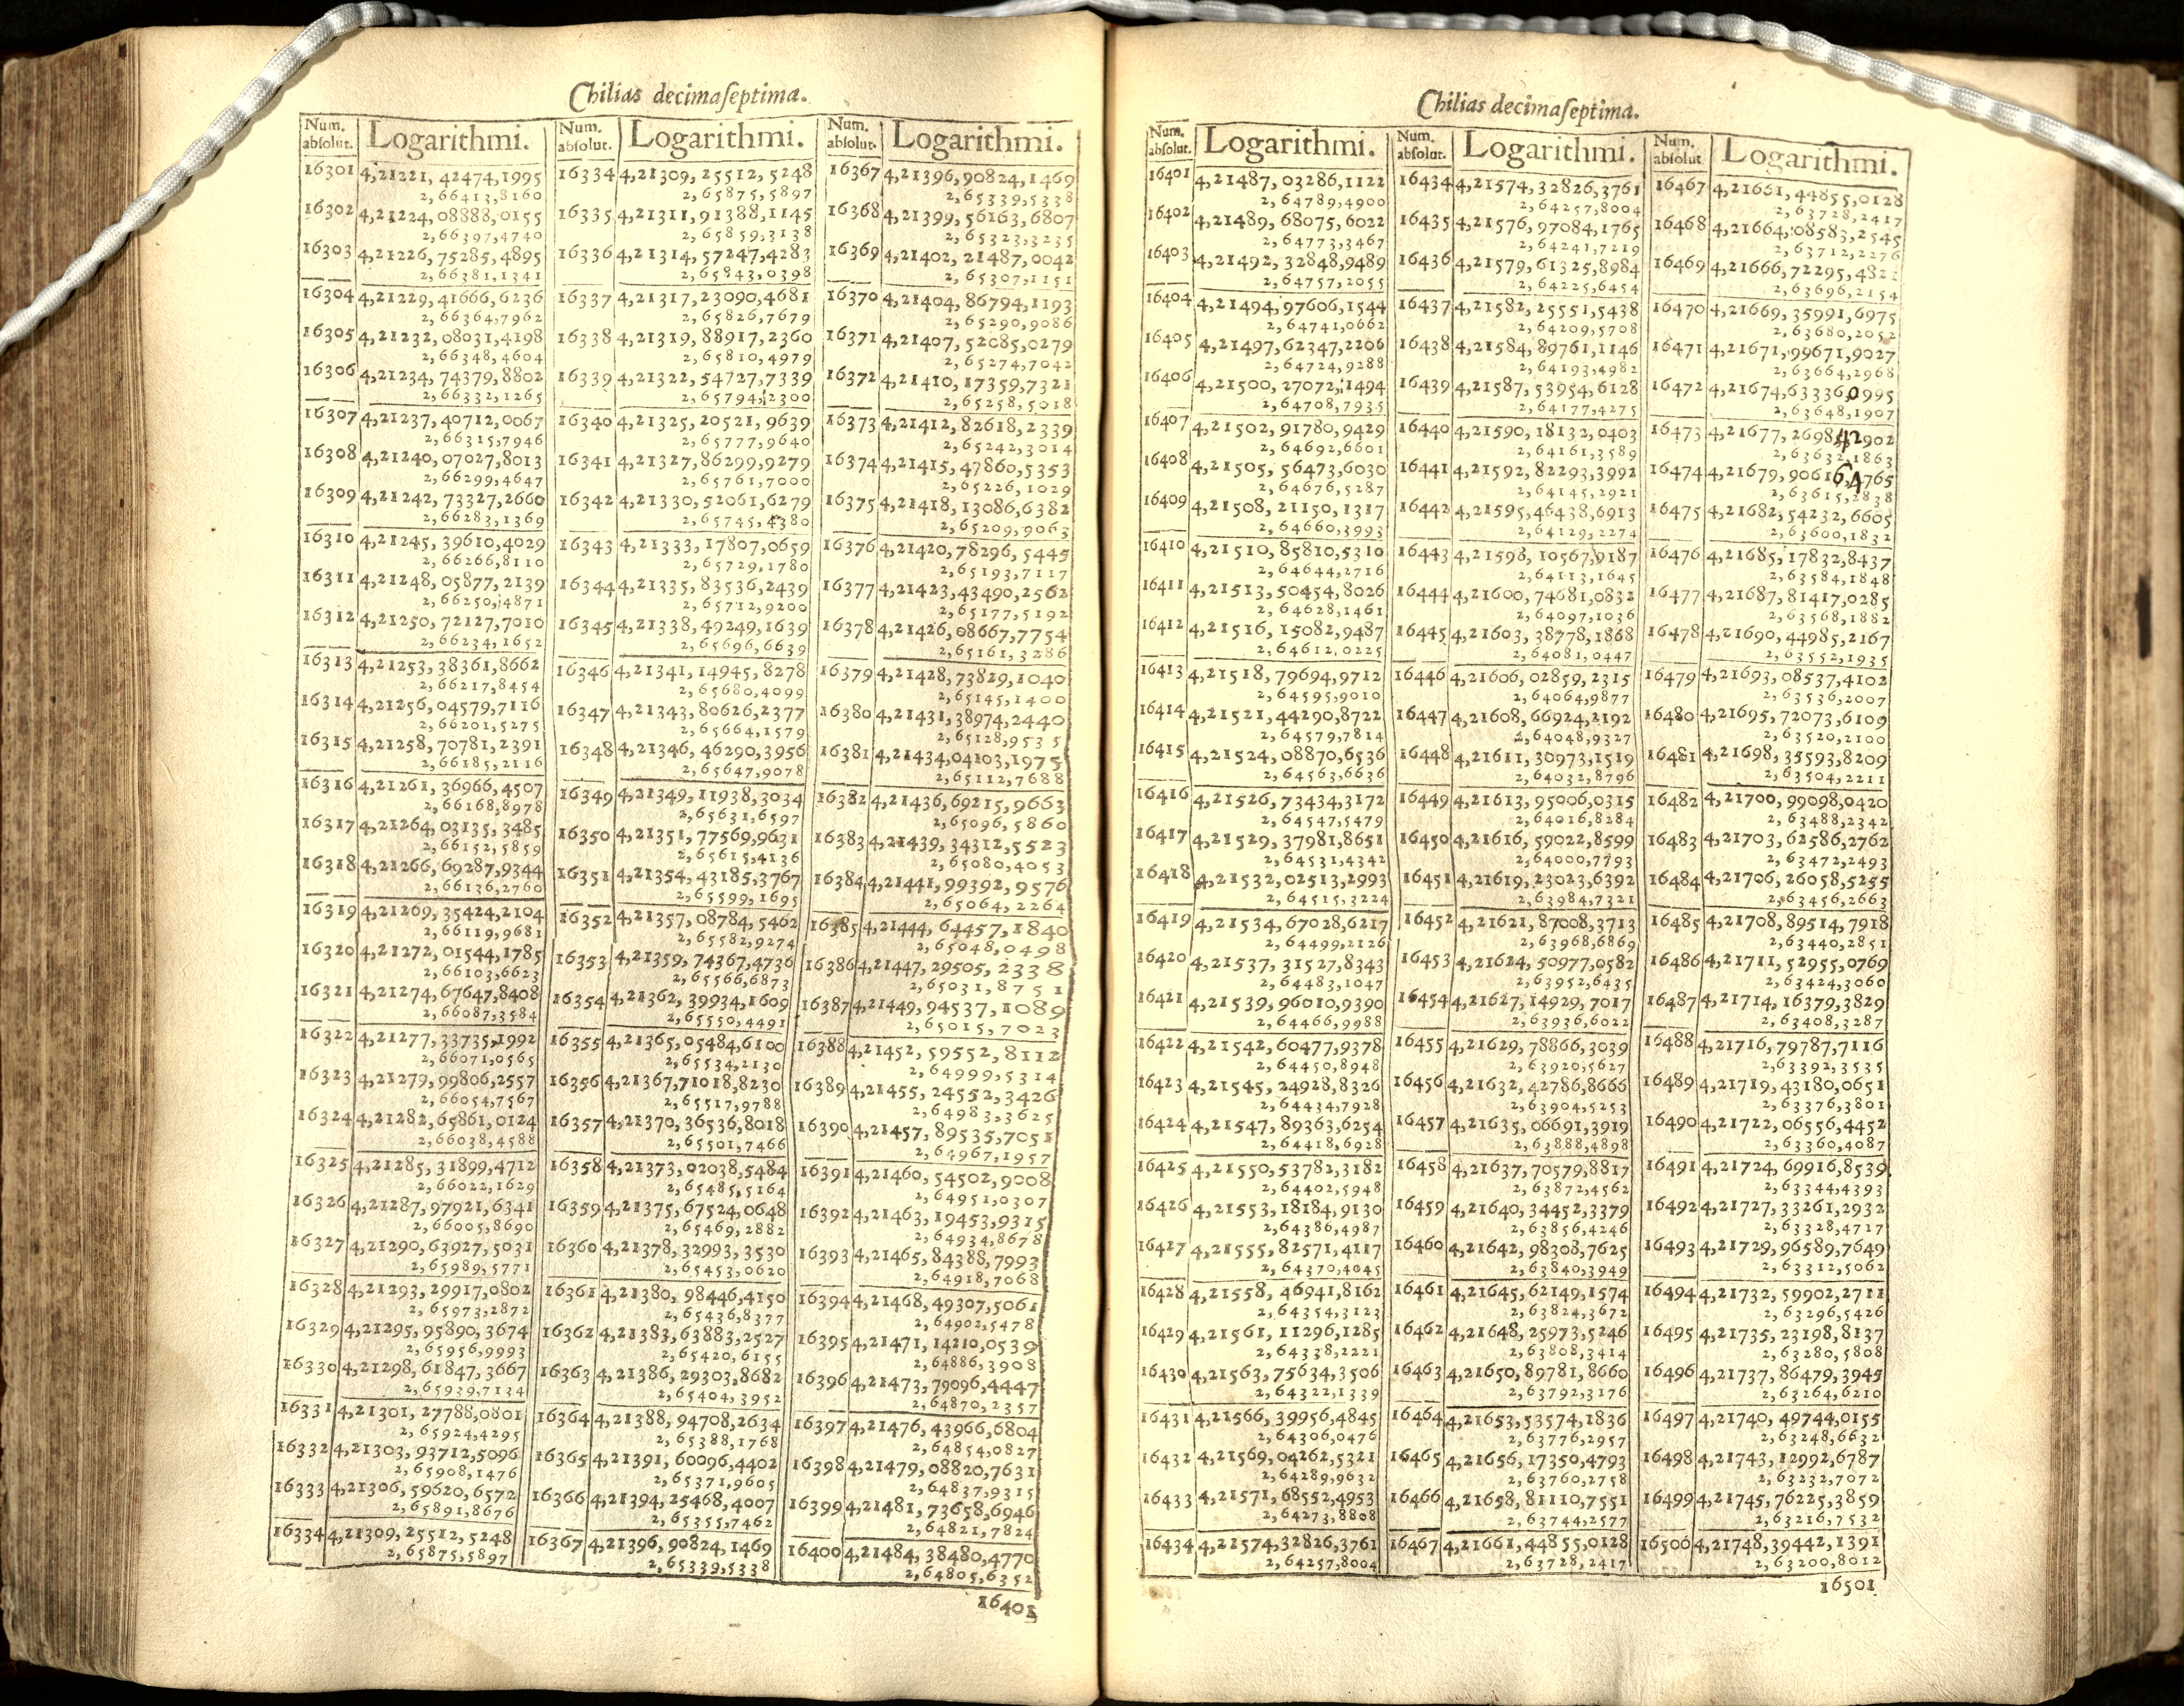 Chilias decimaseptima.
Num. absolut.
Logarithmi.
16301 4,21221,42474,1995
2,66413,8160
16302 4,21224,08888,0155
2,66397,4740
16303 4,21226,75285,4895
2,66381,1341
16304 4,21229,41666,6236
2,66364,7962
16305 4,21232,08031,4198
2,66348,4604
16306 4,21234,74379,8802
2,66332,1265
16307 4,21237,40712,0067
2,66315,7946
16308 4,21240,07027,8013
2,66299,4647
16309 4,21242,73327,2660
2,66283,1369
16310 4,21245,39610,4029
2,66266,8110
16311 4,21248,05877,2139
2,66250,4871
16312 4,21250,72127,7010
2,66234,1652
16313 4,21253,38361,8662
2,66217,8454
16314 4,21256,04579,7116
2,66201,5275
16315 4,21258,70781,2391
2,66185,2116
16316 4,21261,36966,4507
2,66168,8978
16317 4,21264,03135,3485
2,66152,5859
16318 4,21266,69287,9344
2,66136,2760
16319 4,21269,35424,2104
2,66119,9681
16320 4,21272,01544,1785
2,66103,6623
16321 4,21274,67647,8408
2,66087,3584
16322 4,21277,33735,1992
2,66071,0565
16323 4,21279,99806,2557
2,66054,7567
16324 4,21282,65861,0124
2,66038,4588
16325 4,21285,31899,4712
2,66022,1629
16326 4,21287,97921,6341
2,66005,8690
16327 4,21290,63927,5031
2,65989,5771
16328 4,21293,29917,0802
2,65973,2872
16329 4,21295,95890,3674
2,65956,9993
16330 4,21298,61847,3667
2,65939,7134
16331 4,21301,27788,0801
2,65924,4295
16332 4,21303,93712,5096
2,65908,1476
16333 4,21306,59620,6572
2,65891,8676
16334 4,21309,25512,5248
2,65875,5897
Num. absolut.
Logarithmi.
16334 4,21309,25512,5248
2,65875,5897
16335 4,21311,91388,1145
2,65859,3138
16336 4,21314,57247,4283
2,65843,0398
16337 4,21317,23090,4681
2,65826,7679
16338 4,21319,88917,2360
2,65810,4979
16339 4,21322,54727,7339
2,65794,2300
16340 4,21325,20521,9639
2,65777,9640
16341 4,21327,86299,9279
2,65761,7000
16342 4,21330,52061,6279
2,65745,4380
16343 4,21333,17807,0659
2,65729,1780
16344 4,21335,83536,2439
2,65712,9200
16345 4,21338,49249,1639
2,65696,6639
16346 4,21341,14945,8278
2,65680,4099
16347 4,21343,80626,2377
2,65664,1579
16348 4,21346,46290,3956
2,65647,9078
16349 4,21349,11938,3034
2,65631,6597
16350 4,21351,77569,9631
2,65615,4136
16351 4,21354,43185,3767
2,65599,1695
16352 4,21357,08784,5462
2,65582,9274
16353 4,21359,74367,4736
2,65566,6873
16354 4,21362,39934,1609
2,65550,4491
16355 4,21365,05484,6100
2,65534,2130
16356 4,21367,71018,8230
2,65517,9788
16357 4,21370,36536,8018
2,65501,7466
16358 4,21373,02038,5484
2,65485,5164
16359 4,21375,67524,0648
2,65469,2882
16360 4,21378,32993,3530
2,65453,0620
16361 4,21380,98446,4150
2,65436,8377
16362 4,21383,63883,2527
2,65420,6155
16363 4,21386,29303,8682
2,65404,3952
16364 4,21388,94708,2634
2,65388,1768
16365 4,21391,60096,4402
2,65371,9605
16366 4,21394,25468,4007
2,65355,7462
16367 4,21396,90824,1469
2,65339,5338
Num. absolut.
Logarithmi.
16367 4,21396,90824,1469
2,65339,5338
16368 4,21399,56163,6807
2,65323,3235
16369 4,21402,21487,0042
2,65307,1151
16370 4,21404,86794,1193
2,65290,9086
16371 4,21407,52085,0279
2,65274,7042
16372 4,21410,17359,7321
2,65258,5018
16373 4,21412,82618,2339
2,65242,3014
16374 4,21415,47860,5353
2,65226,1029
16375 4,21418,13086,6382
2,65209,9063
16376 4,21420,78296,5445
2,65193,7117
16377 4,21423,43490,2562
2,65177,5192
16378 4,21426,08667,7754
2,65161,3286
16379 4,21428,73829,1040
2,65145,1400
16380 4,21431,38974,2440
2,65128,9535
16381 4,21434,04103,1975
2,65112,7688
16382 4,21436,69215,9663
2,65096,5860
16383 4,21439,34312,5523
2,65080,4053
16384 4,21441,99392,9576
2,65064,2264
16385 4,21444,64457,1840
2,65048,0498
16386 4,21447,29505,2338
2,65031,8751
16387 4,21449,94537,1089
2,65015,7023
16388 4,21452,59552,8112
2,64999,5314
16389 4,21455,24552,3426
2,64983,3625
16390 4,21457,89535,7051
2,64967,1957
16391 4,21460,54502,9008
2,64951,0307
16392 4,21463,19453,9315
2,64934,8678
16393 4,21465,84388,7993
2,64918,7068
16394 4,21468,49307,5061
2,64902,5478
16395 4,21471,14210,0539
2,64886,3908
16396 4,21473,79096,4447
2,64870,2357
16397 4,21476,43966,6804
2,64854,0827
16398 4,21479,08820,7631
2,64837,9315
16399 4,21481,73658,6946
2,64821,7824
16400 4,21484,38480,4770
2,64805,6352
16401
Chilias decimaseptima.
Num. absolut.
Logarithmi.
16401 4,21487,03286,1122
2,64789,4900
16402 4,21489,68075,6022
2,64773,3467
16403 4,21492,32848,9489
2,64757,2055
16404 4,21494,97606,1544
2,64741,0662
16405 4,21497,62347,2206
2,64724,9288
16406 4,21500,27072,1494
2,64708,7935
16407 4,21502,91780,9429
2,64692,6601
16408 4,21505,56473,6030
2,64676,5287
16409 4,21508,21150,1317
2,64660,3993
16410 4,21510,85810,5310
2,64644,2716
16411 4,21513,50454,8026
2,64628,1461
16412 4,21516,15082,9487
2,64612,0225
16413 4,21518,79694,9712
2,64595,9010
16414 4,21521,44290,8722
2,64579,7814
16415 4,21524,08870,6536
2,64563,6636
16416 4,21526,73434,3172
2,64547,5479
16417 4,21529,37981,8651
2,64531,4342
16418 4,21532,02513,2993
2,64515,3224
16419 4,21534,67028,6217
2,64499,2126
16420 4,21537,31527,8343
2,64483,1047
16421 4,21539,96010,9390
2,64466,9988
16422 4,21542,60477,9378
2,64450,8948
16423 4,21545,24928,8326
2,64434,7928
16424 4,21547,89363,6254
2,64418,6928
16425 4,21550,53782,3182
2,64402,5948
16426 4,21553,18184,9130
2,64386,4987
16427 4,21555,82571,4117
2,64370,4045
16428 4,21558,46941,8162
2,64354,3123
16429 4,21561,11296,1285
2,64338,2221
16430 4,21563,75634,3506
2,64322,1339
16431 4,21566,39956,4845
2,64306,0476
16432 4,21569,04262,5321
2,64289,9632
16433 4,21571,68552,4953
2,64273,8808
16434 4,21574,32826,3761
2,64257,8004
Num. absolut.
Logarithmi.
16434 4,21574,32826,3761
2,64257,8004
16435 4,21576,97084,1765
2,64241,7219
16436 4,21579,61325,8984
2,64225,6454
16437 4,21582,25551,5438
2,64209,5708
16438 4,21584,89761,1146
2,64193,4982
16439 4,21587,53954,6128
2,64177,4275
16440 4,21590,18132,0403
2,64161,3589
16441 4,21592,82293,3992
2,64145,2921
16442 4,21595,46438,6913
2,64129,2274
16443 4,21598,10567,9187
2,64113,1645
16444 4,21600,74681,0832
2,64097,1036
16445 4,21603,38778,1868
2,64081,0447
16446 4,21606,02859,2315
2,64064,9877
16447 4,21608,66924,2192
2,64048,9327
16448 4,21611,30973,1519
2,64032,8796
16449 4,21613,95006,0315
2,64016,8284
16450 4,21616,59022,8599
2,64000,7793
16451 4,21619,23023,6392
2,63984,7321
16452 4,21621,87008,3713
2,63968,6869
16453 4,21624,50977,0582
2,63952,6435
16454 4,21627,14929,7017
2,63936,6022
16455 4,21629,78866,3039
2,63920,5627
16456 4,21632,42786,8666
2,63904,5253
16457 4,21635,06691,3919
2,63888,4898
16458 4,21637,70579,8817
2,63872,4562
16459 4,21640,34452,3379
2,63856,4246
16460 4,21642,98308,7625
2,63840,3949
16461 4,21645,62149,1574
2,63824,3672
16462 4,21648,25973,5246
2,63808,3414
16463 4,21650,89781,8660
2,63792,3176
16464 4,21653,53574,1836
2,63776,2957
16465 4,21656,17350,4793
2,63760,2758
16466 4,21658,81110,7551
2,63744,2577
16467 4,21661,44855,0128
2,63728,2417
Num. absolut
Logarithmi.
16467 4,21661,44855,0128
2,63728,2417
16468 4,21664,08583,2545
2,63712,2276
16469 4,21666,72295,4821
2,63696,2154
16470 4,21669,35991,6975
2,63680,2052
16471 4,21671,99671,9027
2,63664,2968
16472 4,21674,63336,0995
2,63648,1907
16473 4,21677,26984,2902
2,63632,1863
16474 4,21679,90616,4765
2,63615,2838
16475 4,21682,54232,6605
2,63600,1832
16476 4,21685,17832,8437
2,63584,1848
16477 4,21687,81417,0285
2,63568,1882
16478 4,21690,44985,2167
2,63552,1935
16479 4,21693,08537,4102
2,63536,2007
16480 4,21695,72073,6109
2,63520,2100
16481 4,21698,35593,8209
2,63504,2211
16482 4,21700,99098,0420
2,63488,2342
16483 4,21703,62586,2762
2,63472,2493
16484 4,21706,26058,5255
2,63456,2663
16485 4,21708,89514,7918
2,63440,2851
16486 4,21711,52955,0769
2,63424,3060
16487 4,21714,16379,3829
2,63408,3287
16488 4,21716,79787,7116
2,63392,3535
16489 4,21719,43180,0651
2,63376,3801
16490 4,21722,06556,4452
2,63360,4087
16491 4,21724,69916,8539
2,63344,4393
16492 4,21727,33261,2932
2,63328,4717
16493 4,21729,96589,7649
2,63312,5062
16494 4,21732,59902,2711
2,63296,5426
16495 4,21735,23198,8137
2,63280,5808
16496 4,21737,86479,3945
2,63264,6210
16497 4,21740,49744,0155
2,63248,6632
16498 4,21743,12992,6787
2,63232,7072
16499 4,21745,76225,3859
2,63216,7532
16506 4,21748,39442,1391
2,63200,8012
16501